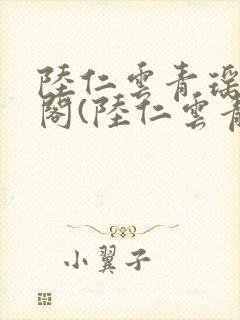 陸仁雲青瑤
閣(陸仁雲青
小翼子